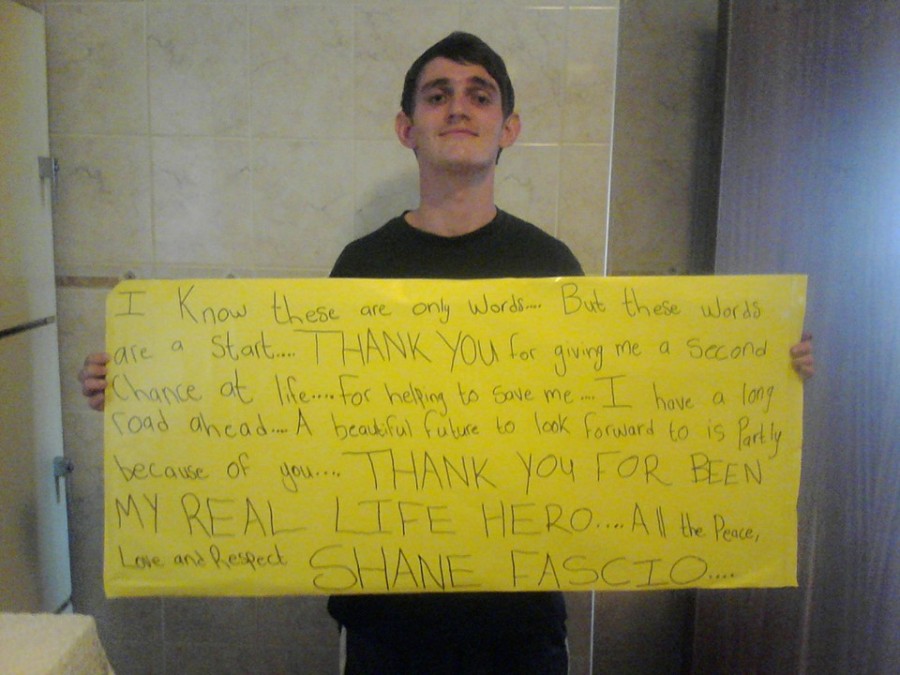 I Know these are only words.... But these words
are a Start.... THANK YOU for giving me a Second
Chance at life.... for helping to save me.... I have a long
road ahead.... A beautiful future to look forward to is Partly
because of you.... THANK YOU FOR BEEN
MY REAL LIFE HERO.... All the Peace,
Love and Respect SHANE FASCIO....